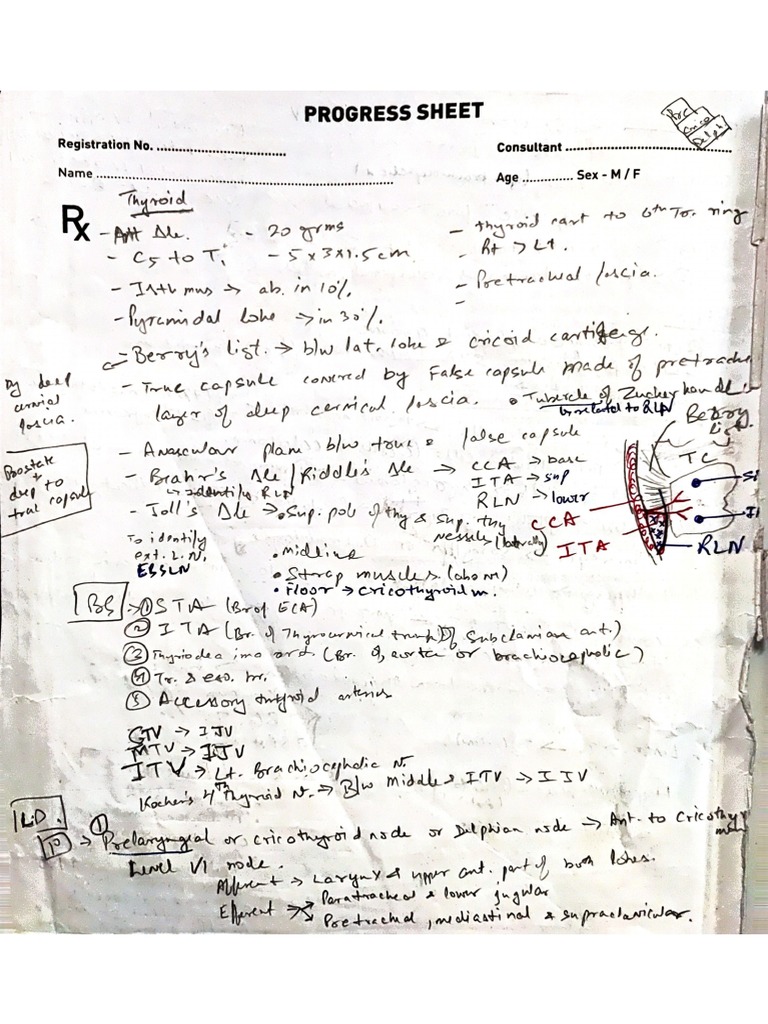 PROGRESS SHEET
Registration No.
Consultant
Name
Age Sex - M / F
Thyroid
Rx
- Att Δle. - 20 grms - thyroid cart to 6th Tr. ring
- C5 to T1 - 5 x 3 x 1.5 cm. - Rt > Lt.
- Isthmus → ab. in 10%. - Pretracheal fascia.
- Pyramidal lobe → in 30%.
- Berry's ligt. → b/w lat. lobe & cricoid cartilage.
- True capsule covered by False capsule made of pretrache
layer of deep cervical fascia. • Tubercle of Zuckerkandl
is related to RLN
By deep
cervical
fascia.
Prostate
+
deep to
true capsule
- Avascular plane b/w true & false capsule
- Brahr's Δle / Riddles Δle → CCA → base
ITA → sup
RLN → lower
↳ identify RLN
- Joll's Δle → • Sup. pole of thy & sup. thy
vessels (laterally)
To identify
ext. L.N.
EBSLN
• midline
• Strap muscles (above)
• Floor → cricothyroid m.
Berry
ligt.
TC
CCA
ITA
RLN
BS → ① STA (Br of ECA)
② ITA (Br. of Thyrocervical trunk of Subclavian art.)
③ Thyroidea ima art. (Br. of aorta or brachiocephalic)
④ Tr. & eso. br.
⑤ Accessory thyroid arteries
STV → IJV
MTV → IJV
ITV → Lt. Brachiocephalic v.
Kocher's 4th Thyroid v. → B/w Middle & ITV → IJV
L.D.
1° → ① Prelaryngeal or cricothyroid node or Delphian node → Ant. to Cricothy
mem
Level VI node.
Afferent → Larynx & upper ant. part of both lobes.
Efferent → Paratracheal & lower jugular
→ Pretracheal, mediastinal & supraclavicular.